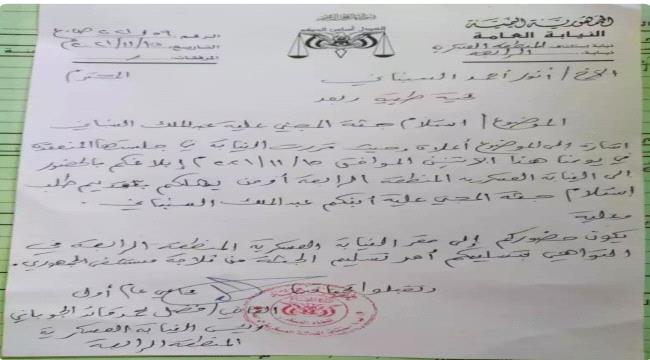 الجمهورية اليمنية
النيابة العامة
نيابة استئناف المنطقة العسكرية
الرابعة
العدل أساس الحكم
الرقم
التاريخ ١٥/١١/٢٠٢١م
المرفقات
الأخ/ أنور أحمد السنباني المحترم
تحية طيبة وبعد
الموضوع/ استلام جثة المجني عليه عبدالملك السنباني
إشارة إلى الموضوع أعلاه وحيث قررت النيابة في جلستها المنعقدة
في يومنا هذا الاثنين الموافق ١٥/١١/٢٠٢١م إبلاغكم بالحضور
إلى النيابة العسكرية المنطقة الرابعة أو من يمثلكم بتقديم طلب
استلام جثة المجني عليه ابنكم عبدالملك السنباني.
وعليه
يكون حضوركم إلى مقر النيابة العسكرية المنطقة الرابعة في
التواهي لتسليمكم أمر تسليم الجثة من ثلاجة مستشفى الجمهوري.
وتقبلوا تحياتنا
محامي عام أول
القاضي/ فضل محمد قائد الجوباني
رئيس النيابة العسكرية
المنطقة الرابعة